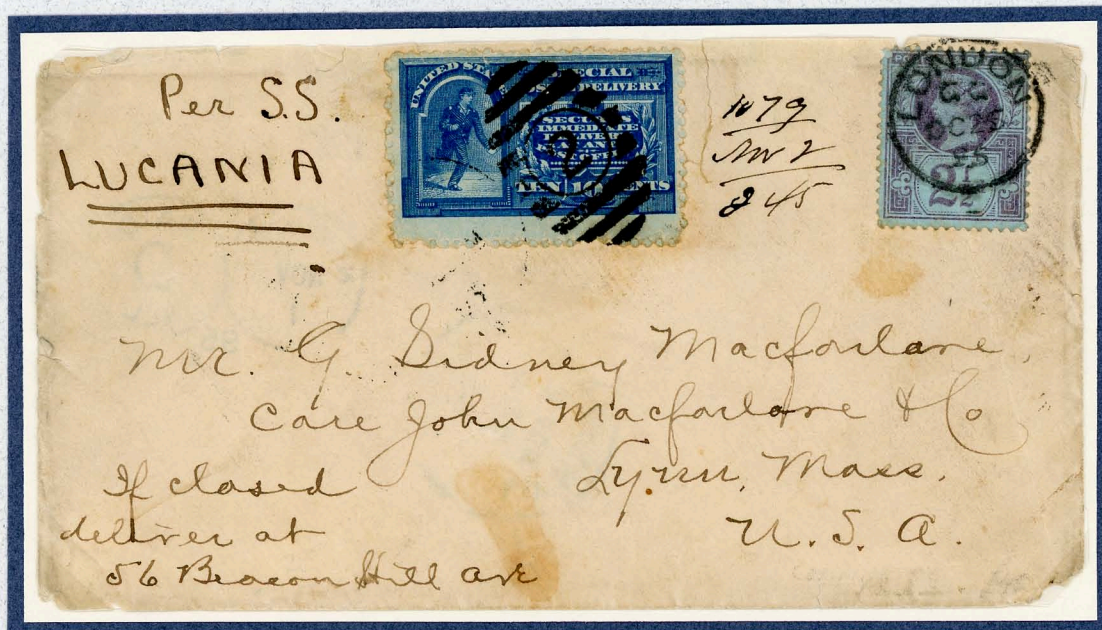 Per S.S.
LUCANIA
UNITED STA SPECIAL
DELIVERY
SECURES
IMMEDIATE
TEN 10 CENTS
1079
Nov 2
8 45
LONDON
OC
95
2½
Mr. G. Sidney Macfarlane,
Care John Macfarlane & Co
Lynn, Mass.
U. S. A.
If closed
deliver at
56 Beacon Hill ave